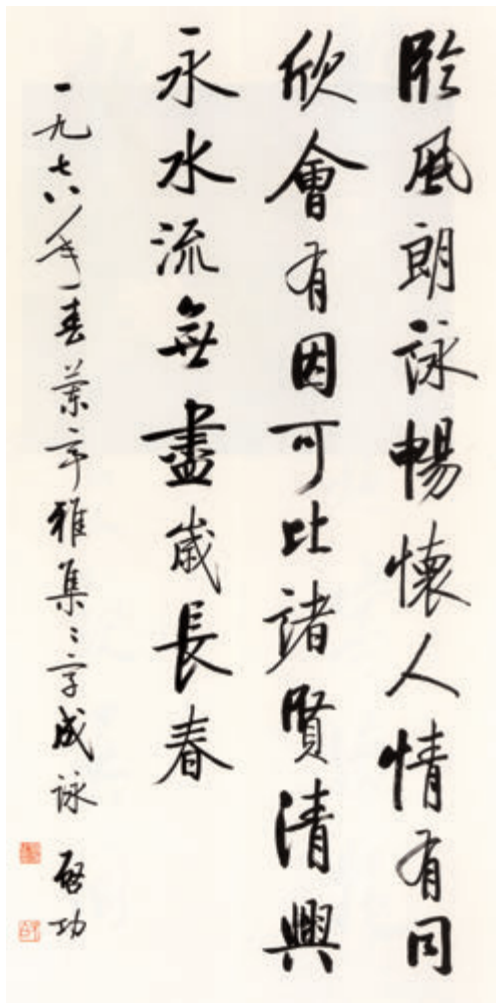 臨風朗詠暢懷人情有同
欣會有因可比諸賢清興
永水流無盡歲長春
一九七八年春蘭亭雅集〻字成詠 啟功